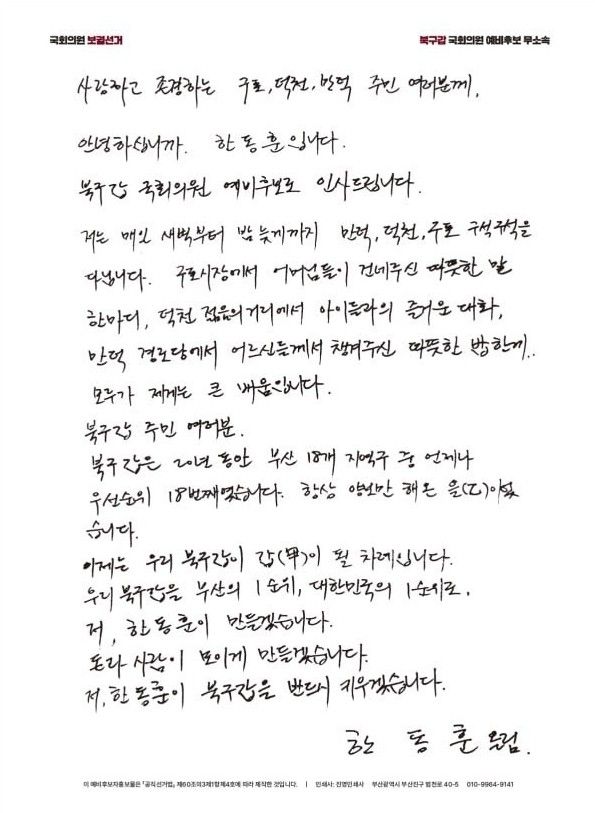 국회의원 보궐선거
북구갑 국회의원 예비후보 무소속
사랑하고 존경하는 구포, 덕천, 만덕 주민 여러분께,
안녕하십니까. 한동훈입니다.
북구갑 국회의원 예비후보로 인사드립니다.
저는 매일 새벽부터 밤 늦게까지 만덕, 덕천, 구포 구석구석을
다닙니다. 구포시장에서 어머님들이 건네주신 따뜻한 말
한마디, 덕천 젊음의거리에서 아이들과의 즐거운 대화,
만덕 경로당에서 어르신들께서 챙겨주신 따뜻한 밥한끼..
모두가 제게는 큰 배움입니다.
북구갑 주민 여러분.
북구갑은 20년 동안 부산 18개 지역구 중 언제나
우선순위 18번째였습니다. 항상 양보만 해온 을(乙)이었
습니다.
이제는 우리 북구갑이 갑(甲)이 될 차례입니다.
우리 북구갑을 부산의 1순위, 대한민국의 1순위로.
저, 한동훈이 만들겠습니다.
돈과 사람이 모이게 만들겠습니다.
저, 한동훈이 북구갑을 반드시 키우겠습니다.
한 동 훈 올림.
이 예비후보자홍보물은 「공직선거법」 제60조의3제1항제4호에 따라 제작한 것입니다. | 인쇄사: 진명인쇄사 부산광역시 부산진구 범천로 40-5 010-9964-9141